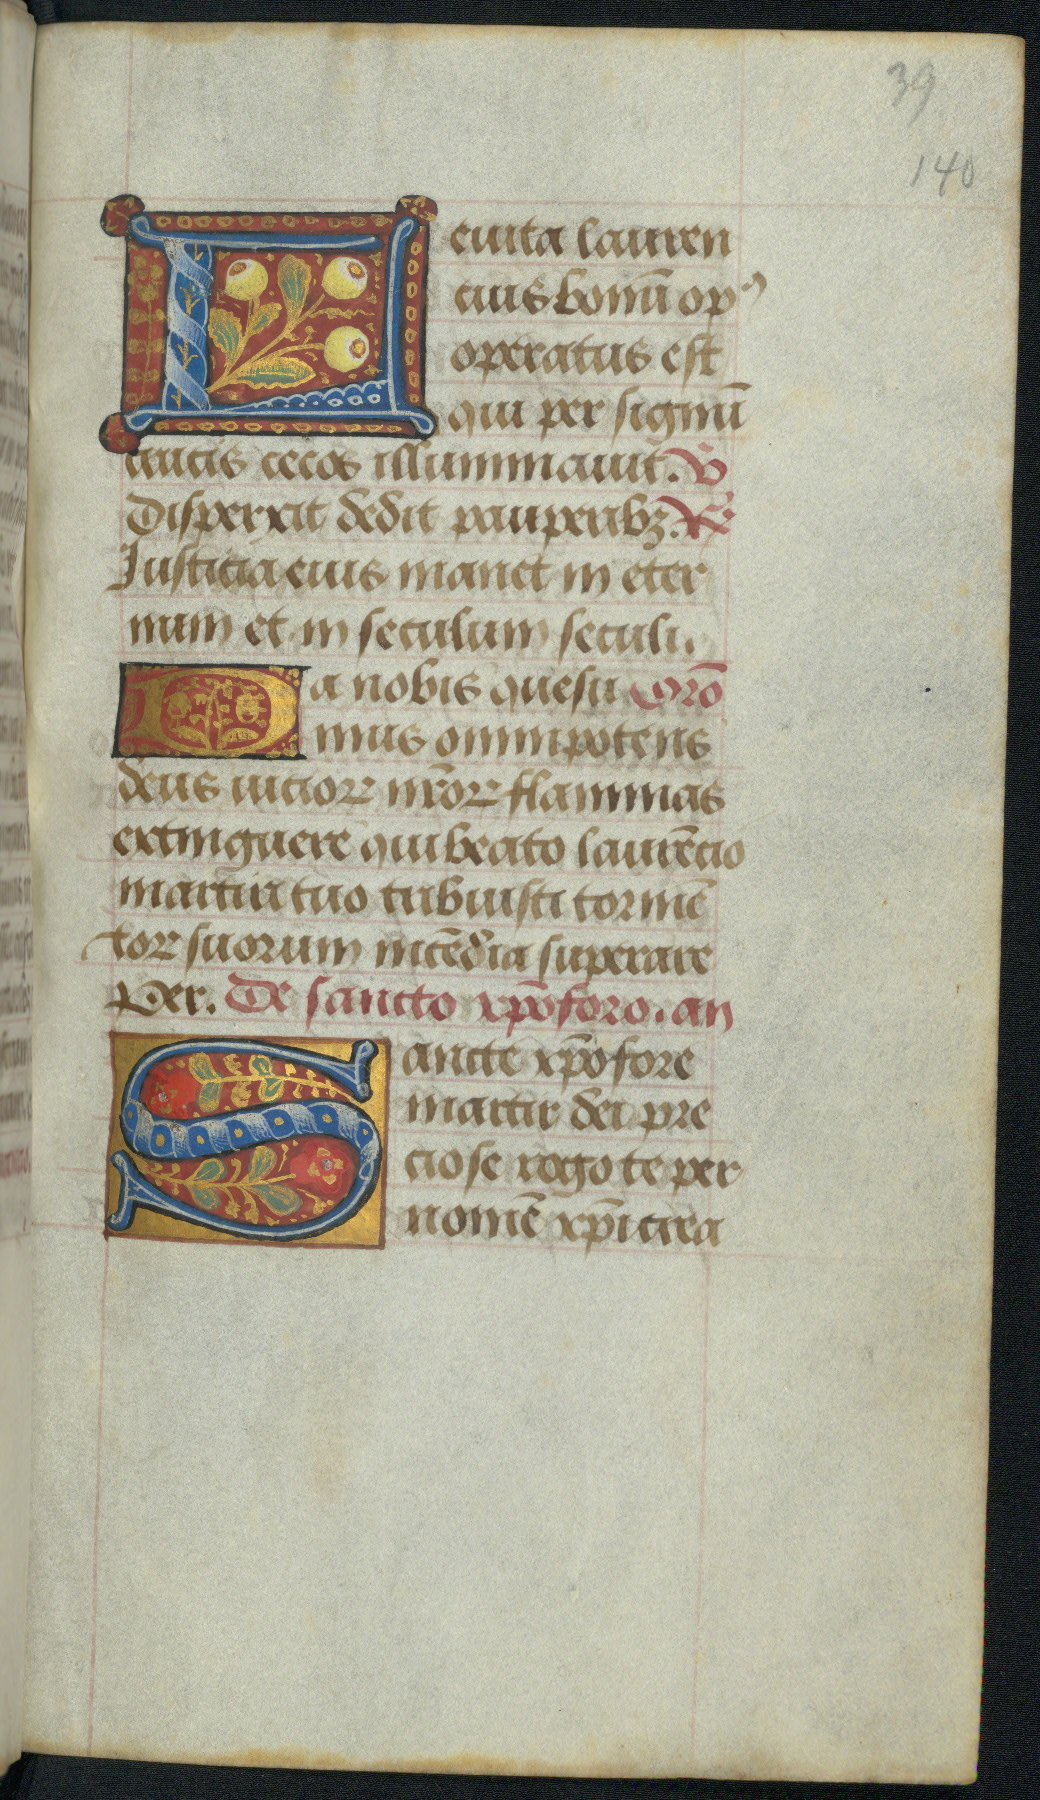 39
140
Leuita lauren
cius bonū opꝰ
operatus est
qui per signū
crucis cecos illuminauit. ℣
Disperxit dedit pauperibꝫ. ℟
Iusticia eius manet in eter
num et in seculum seculi.
Da nobis quesu Orō
mus omnipotens
deus vicioꝝ nr̄oꝝ flammas
extinguere qui beato laurēcio
martiri tuo tribuisti tormē
toꝝ suorum incēdia superare
Per. De sancto xp̄oforo. an
Sancte xp̄ofore
martir dei pre
ciose rogo te per
nomē xp̄i crea